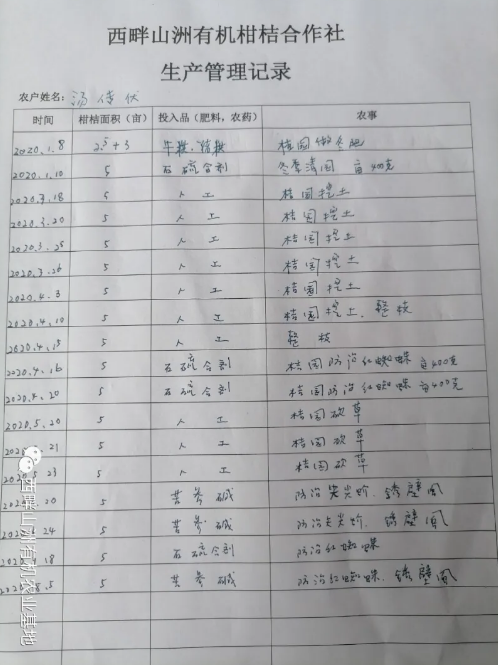 西畔山洲有机柑桔合作社
生产管理记录
农户姓名：汤
时间 柑桔面积（亩） 投入品（肥料，农药） 农事
2020.1.8 2.5+3 牛粪、猪粪 桔园做冬肥
2020.1.10 5 石硫合剂 冬季清园 亩400克
2020.3.18 5 人工 桔园挖土
2020.3.20 5 人工 桔园挖土
2020.3.25 5 人工 桔园挖土
2020.3.26 5 人工 桔园挖土
2020.4.3 5 人工 桔园挖土
2020.4.10 5 人工 桔园挖土、整枝
2020.4.15 5 人工 整枝
2020.4.16 5 石硫合剂 桔园防治红蜘蛛 亩400克
2020.4.20 5 石硫合剂 桔园防治红蜘蛛 亩400克
2020.5.20 5 人工 桔园砍草
21 5 人工 桔园砍草
23 5 人工 桔园砍草
20 5 苦参碱 防治 锈壁虱
24 5 苦参碱 防治 锈壁虱
18 5 石硫合剂 防治红蜘蛛
5 5 苦参碱 防治红蜘蛛、锈壁虱
西畔山洲有机农业基地